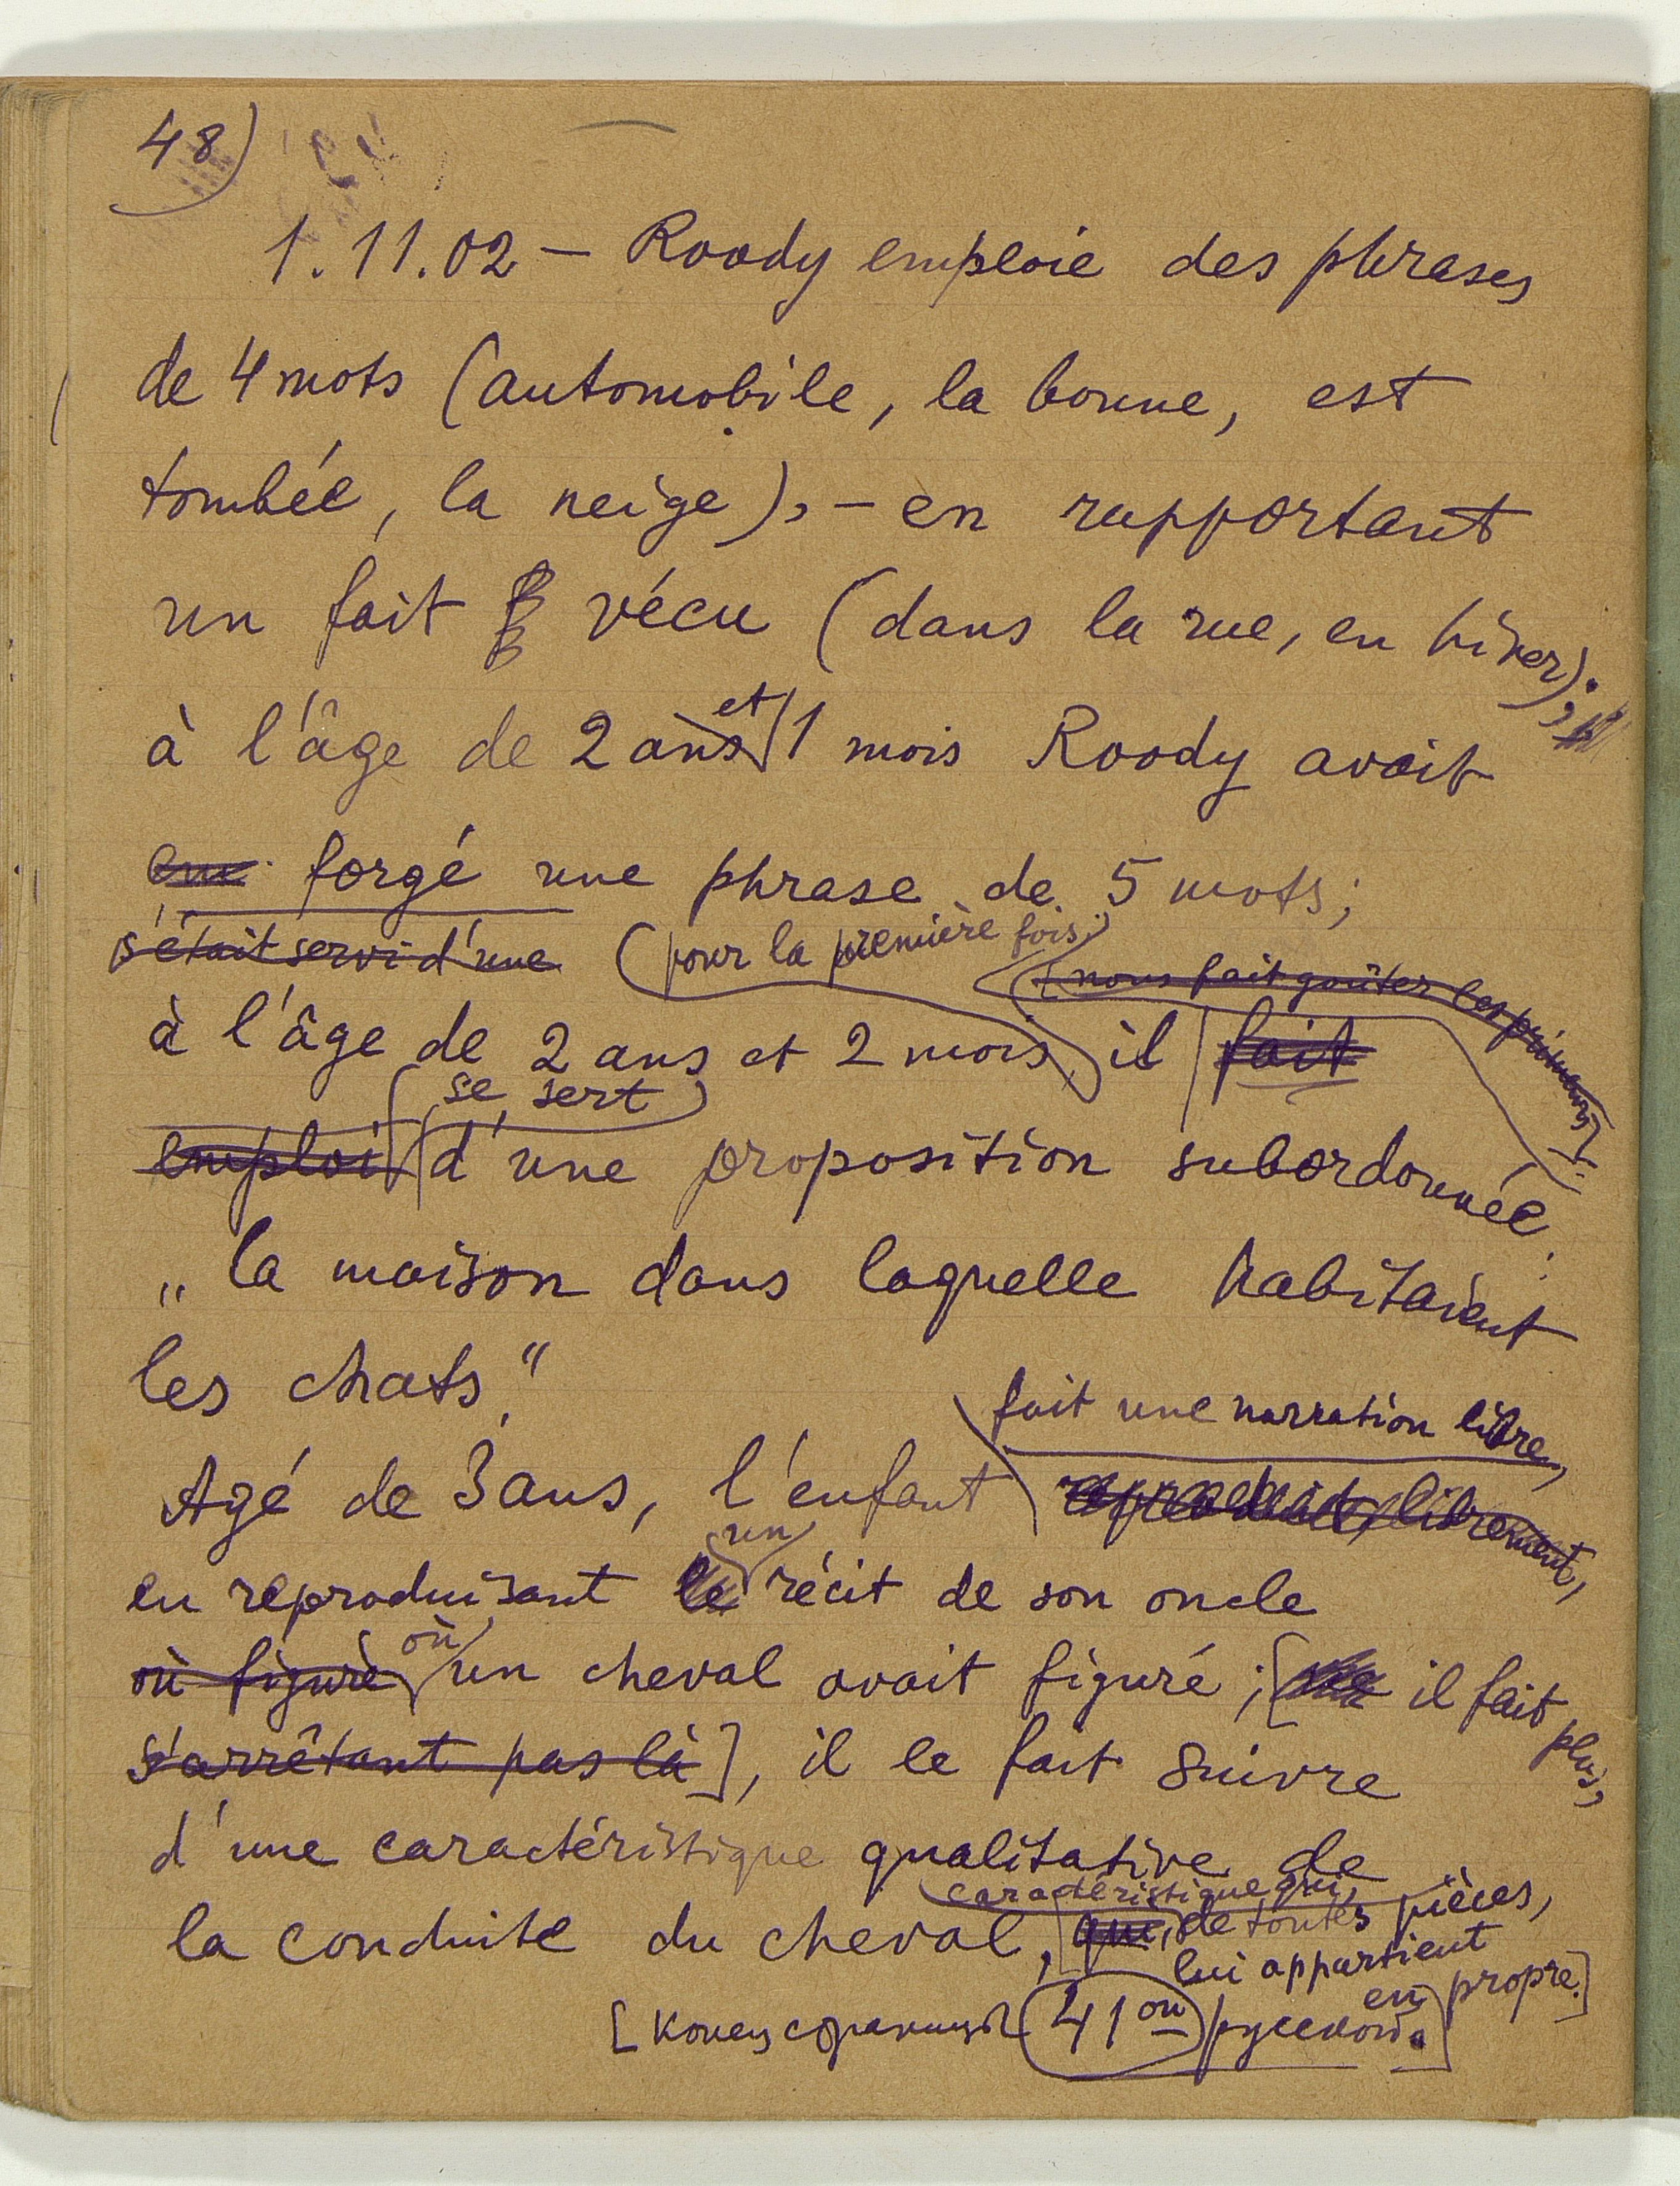 48)
1.11.02 — Roody emploie des phrases
de 4 mots (automobile, la bonne, est
tombée, la neige), — en rapportant
un fait vécu (dans la rue, en hiver);
à l'âge de 2 ans et 1 mois Roody avait
forgé une phrase de 5 mots;
s'était servi d'une (pour la première fois)
(nous fait goûter les primeurs)
à l'âge de 2 ans et 2 mois il fait
se sert
emploi d'une proposition subordonnée:
„la maison dans laquelle habitaient
les chats."
fait une narration libre,
Agé de 3 ans, l'enfant reproduit librement,
un
en reproduisant le récit de son oncle
où figure où un cheval avait figuré; [ne il fait plus,
s'arrêtant pas là], il le fait suivre
d'une caractéristique qualitative de
caractéristique qui,
la conduite du cheval, [qui, de toutes pièces,
lui appartient
en propre.]
[Конец страницы 41ой русской.]